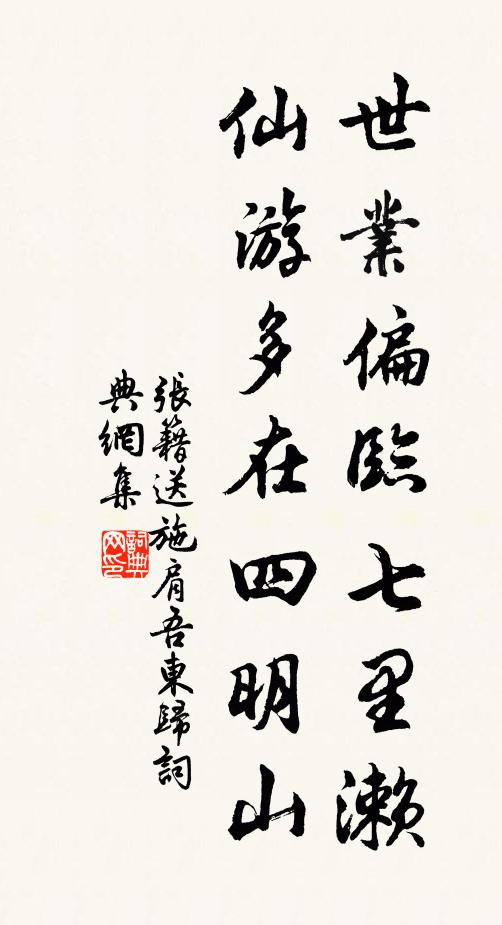 世業偏臨七里瀨
仙游多在四明山
張籍送施肩吾東歸詞
典網集
詞典网印